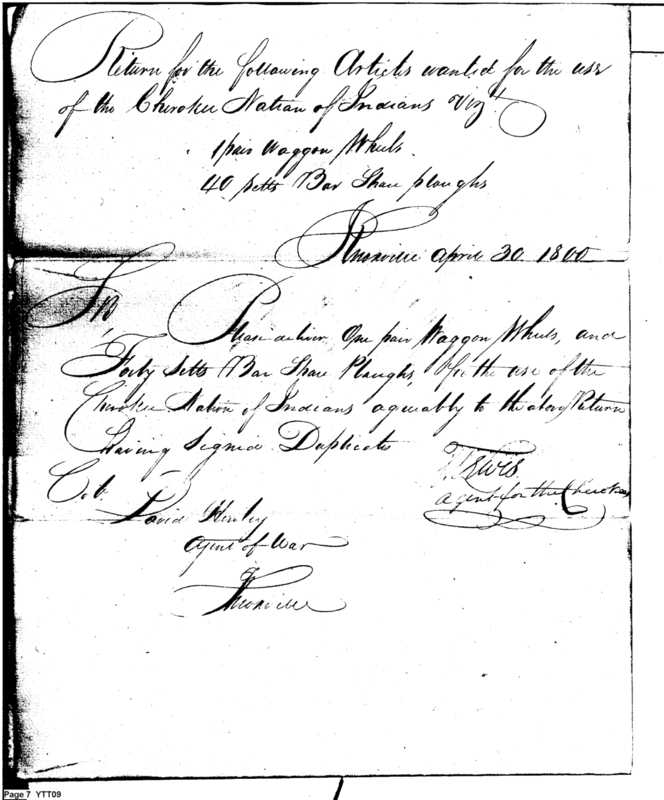 Return for the following Articles wanted for the use
of the Cherokee Nation of Indians Vizt.
1 pair Waggon Wheels
40 setts Bar Share ploughs
Knoxville April 30 1800
Sir
Please deliver One pair Waggon Wheels, and
Forty Setts Bar Share Ploughs, for the use of the
Cherokee Nation of Indians agreeably to the above Return
having Signed Duplicate
Lewis
agent for the Cherokees
Col.
David Henley
Agent of War
Knoxville
Page 7 YTT09